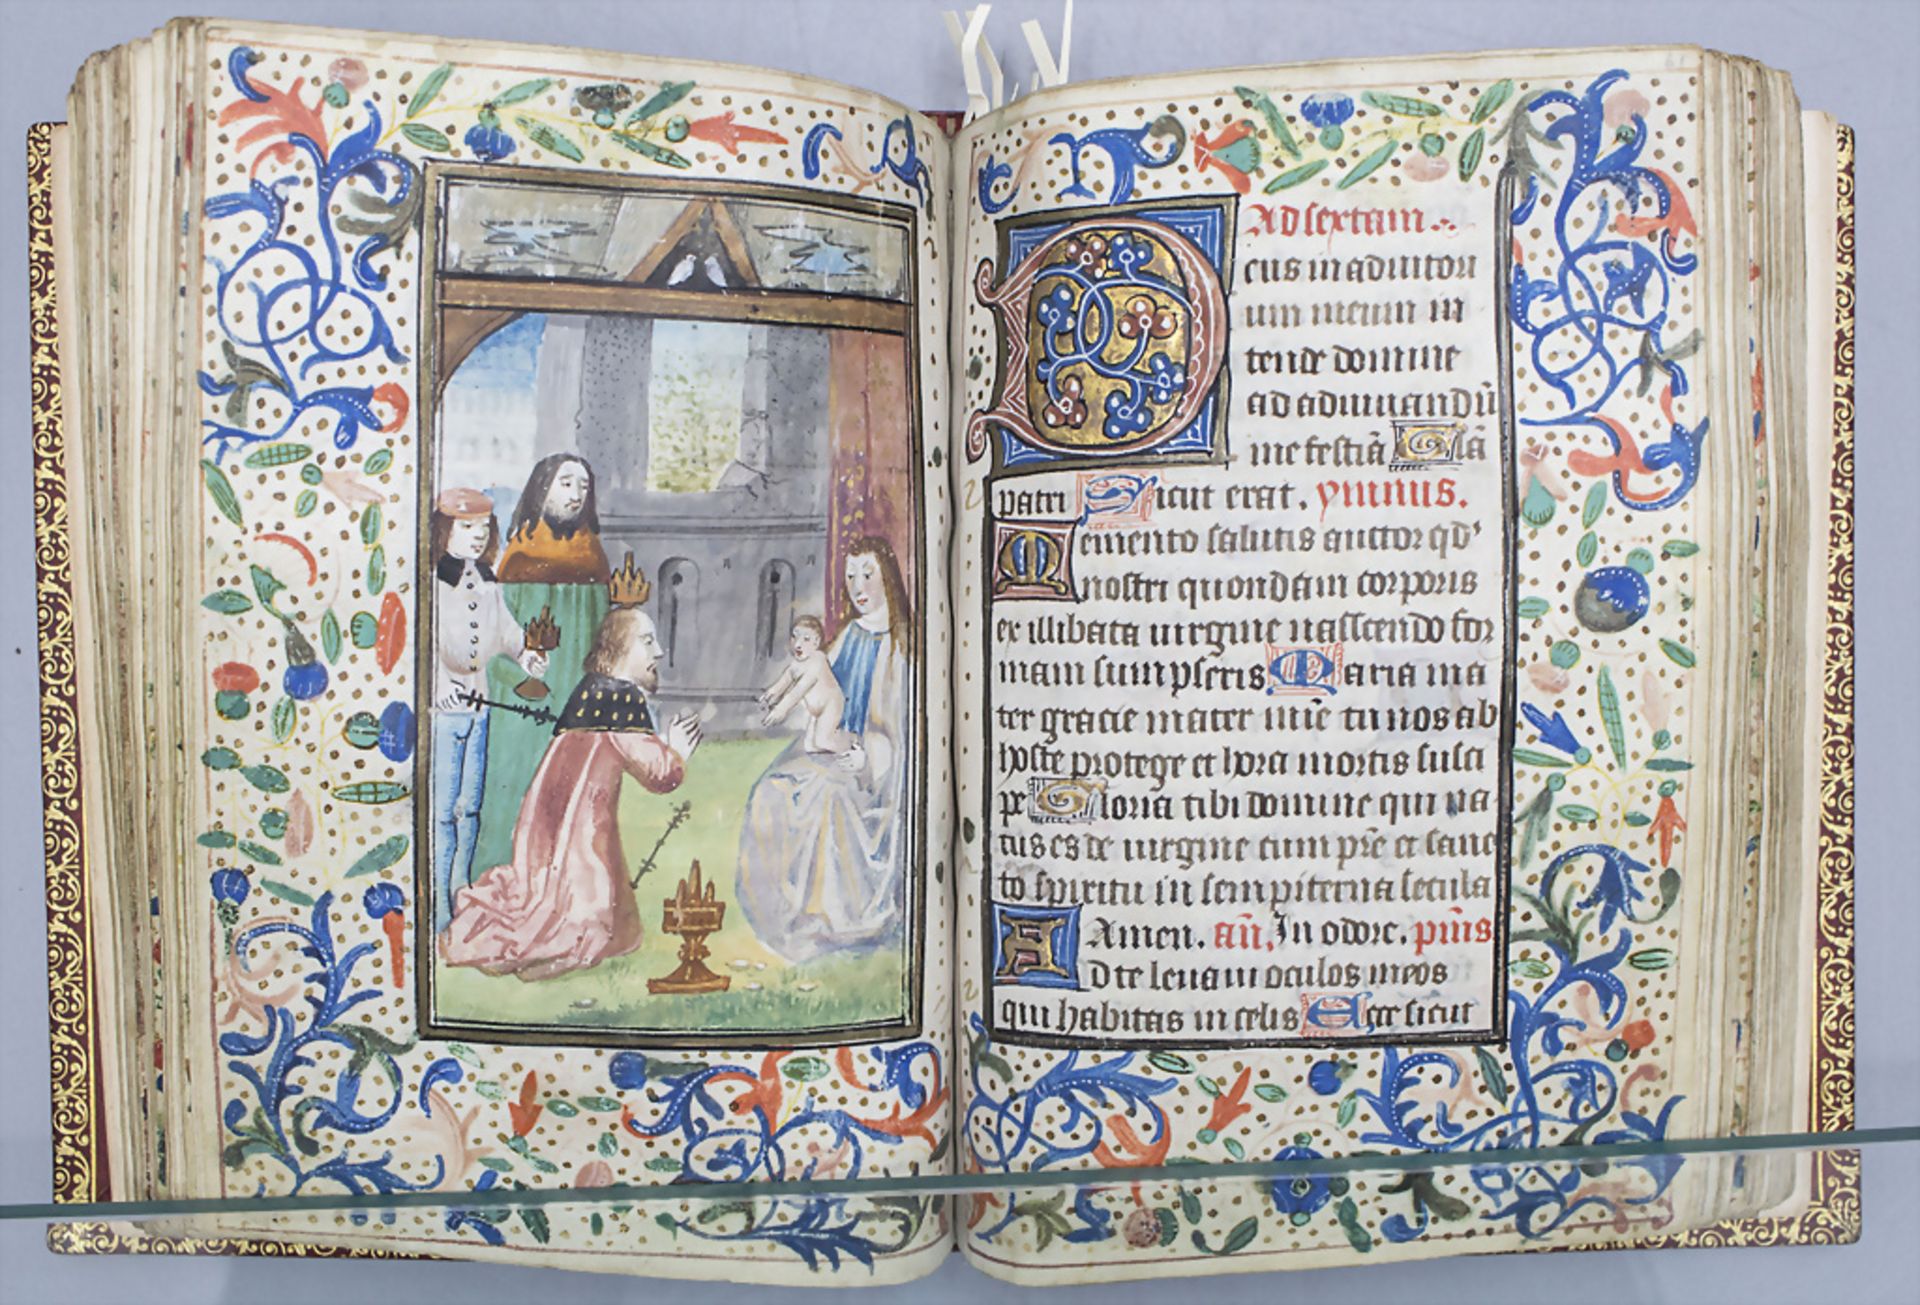 Ad sextam.
Deus in adiutori
um meum in
tende domine
ad adiuuandū
me festiā Glā
patri Sicut erat. ymnus.
Memento salutis auctor qd'
nostri quondam corporis
ex illibata uirgine nascendo for
mam sumpseris Maria ma
ter gracie mater mīe tu nos ab
hoste protege et hora mortis susci
pe Gloria tibi domine qui na
tus es de uirgine cum pr̄e et sanc
to spiritu in sempiterna secula
Amen. an̄. In odore. ps̄mus
Ad te leuaui oculos meos
qui habitas in celis Ecce sicut